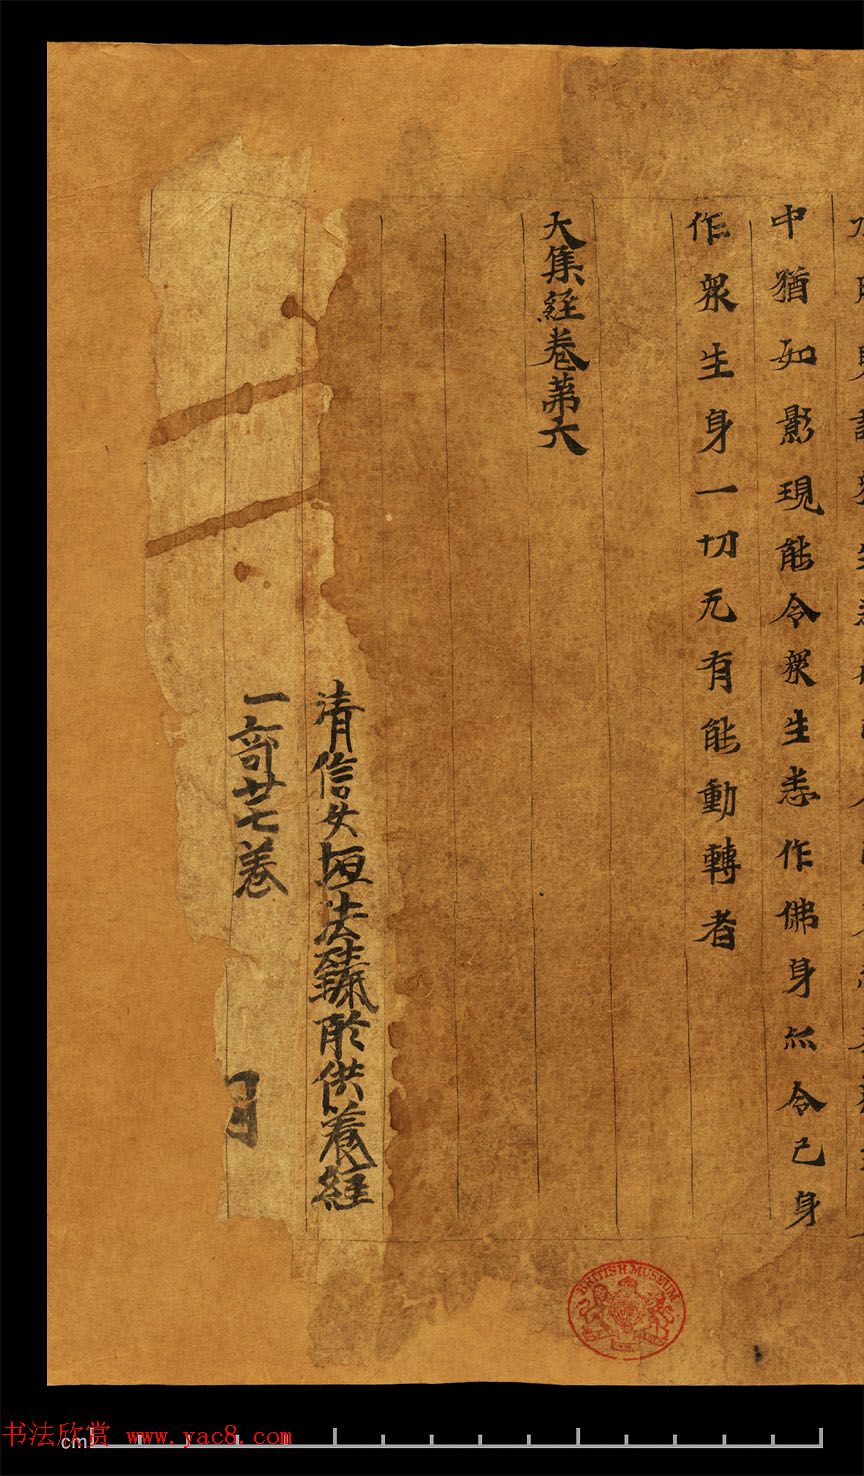 中猶如影現能令衆生悉作佛身亦令己身
作衆生身一切无有能動轉者
大集經卷第六
清信女垣法臻所供養經
一部廿七卷
BRITISH MUSEUM
cm
书法欣赏 www.yac8.com